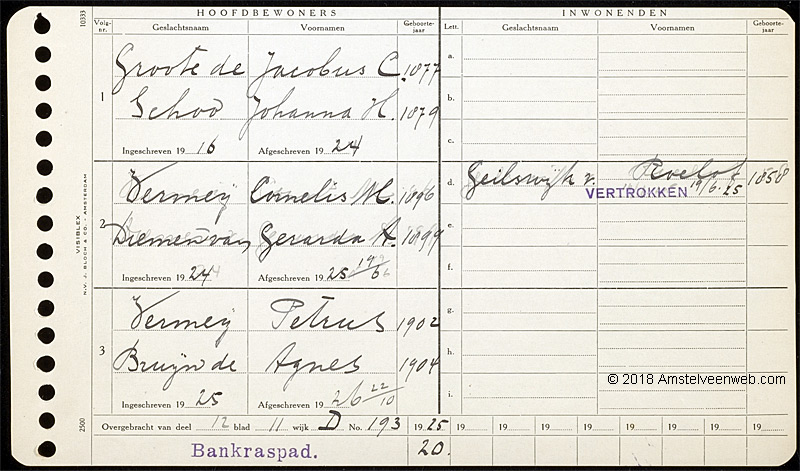 HOOFDBEWONERS INWONENDEN
Volg-nr. Geslachtsnaam Voornamen Geboorte-jaar Lett. Geslachtsnaam Voornamen Geboorte-jaar
10333
1 Groote de Jacobus C. 1877 a.
Schoo Johanna H. 1879 b.
c.
Ingeschreven 19 16 Afgeschreven 19 24
Vermey Cornelis M. 1896 d. Geilswijk v. Roelof 1858
VERTROKKEN 19/6-25
2 Diemen van Gerarda A. 1899 e.
f.
Ingeschreven 19 24 Afgeschreven 19 25 19/6
VISIBLEX
N.V. J. BLOCH & CO. - AMSTERDAM
Vermey Petrus 1902 g.
3 Bruijn de Agnes 1904 h.
© 2018 Amstelveenweb.com
i.
Ingeschreven 19 25 Afgeschreven 19 26 22/10
2500
Overgebracht van deel 12 blad 11 wijk D No. 193 19 25 19 19 19 19 19 19 19
Bankraspad. 20.